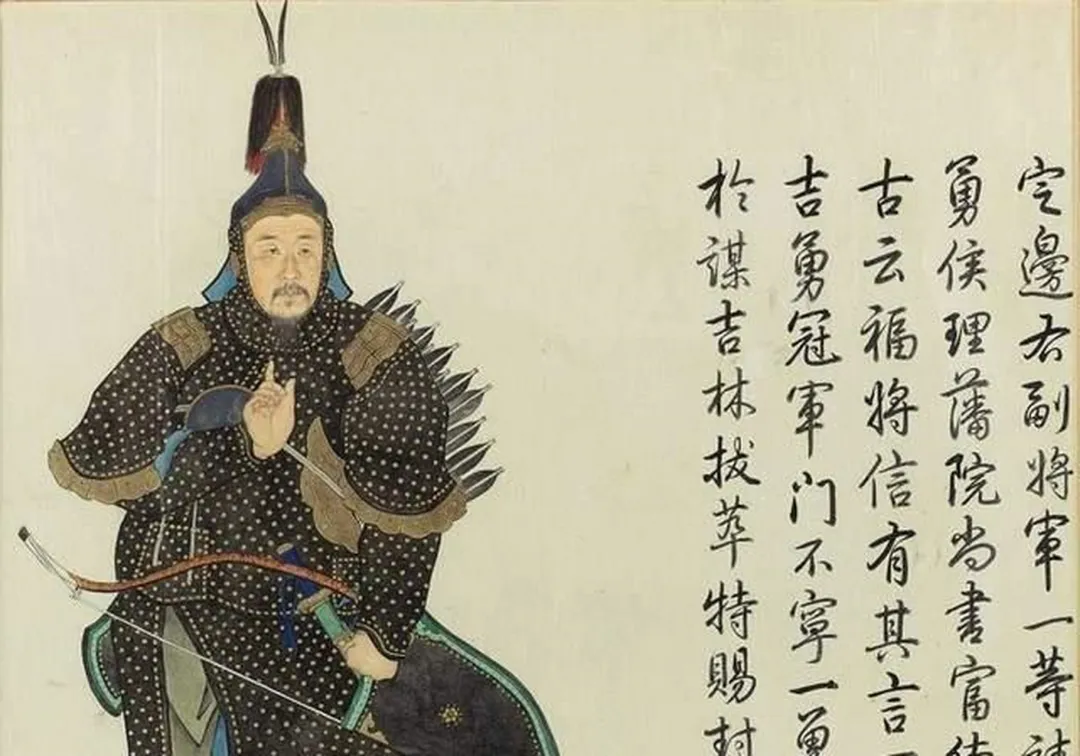 定邊右副將軍一等
勇侯理藩院尚書富
古云福將信有其言
吉勇冠軍門不寧一勇
於謀吉林拔萃特賜封